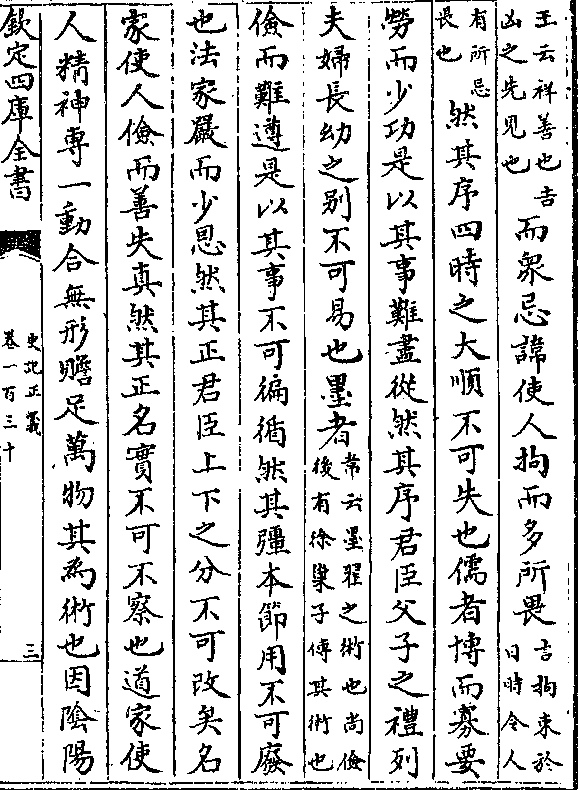 王云祥善也吉
凶之先見也
而衆忌諱使人拘而多所畏
言拘束於
日時令人
有所忌
畏也
然其序四時之大順不可失也儒者博而寡要
勞而少功是以其事難盡從然其序君臣父子之禮列
夫婦長幼之别不可易也墨者
韋云墨翟之術也尚儉
後有徐巢子傳其術也
儉而難遵是以其事不可徧循然其彊本節用不可廢
也法家嚴而少恩然其正君臣上下之分不可改矣名
家使人儉而善失真然其正名實不可不察也道家使
人精神專一動合無形贍足萬物其為術也因隂陽
欽定四庫全書
史記正義
卷一百三十
三